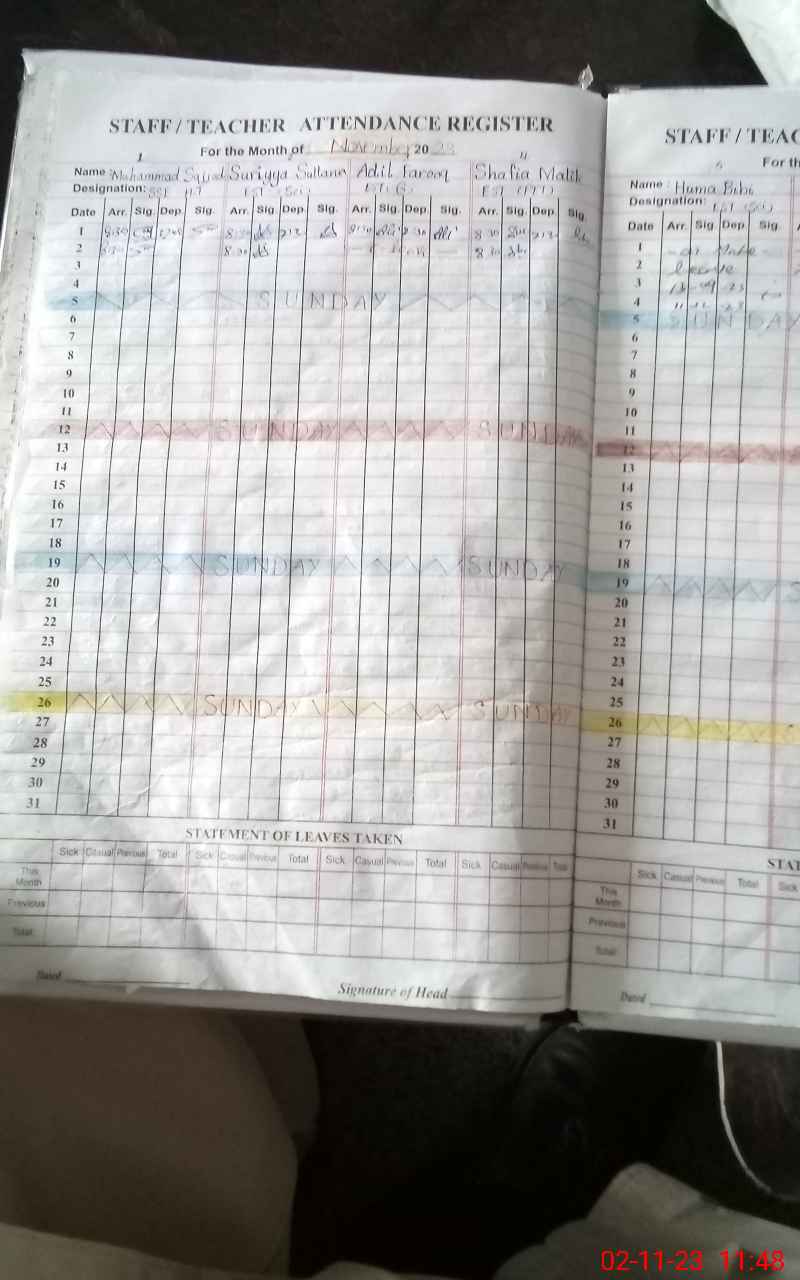 STAFF / TEACHER ATTENDANCE REGISTER
For the Month of November 2023
1 4
Name Muhammad Sajjad Suriyya Sultana Adil Farooq Shafia Malik
Designation: SST EST (Sci) EST
Date Arr. Sig. Dep. Sig. Arr. Sig. Dep. Sig. Arr. Sig. Dep. Sig. Arr. Sig. Dep. Sig.
1 8:30 8:30 8:30 8:30
2 8:30 8:30 8:30
3
4
5 SUNDAY
6
7
8
9
10
11
12 SUNDAY SUNDAY
13
14
15
16
17
18
19 SUNDAY SUNDAY
20
21
22
23
24
25
26 SUNDAY SUNDAY
27
28
29
30
31
STATEMENT OF LEAVES TAKEN
Sick Casual Previous Total Sick Casual Previous Total Sick Casual Previous Total Sick Casual Previous Total
This Month
Previous
Total
Dated
Signature of Head
STAFF / TEAC
For th
Name : Huma Bibi
Designation: EST (Sci)
Date Arr. Sig. Dep. Sig.
1
2 leave
3
4
5 SUNDAY
6
7
8
9
10
11
12
13
14
15
16
17
18
19 S
20
21
22
23
24
25
26
27
28
29
30
31
STAT
Sick Casual Previous Total Sick
This Month
Previous
Total
Dated
02-11-23 11:48